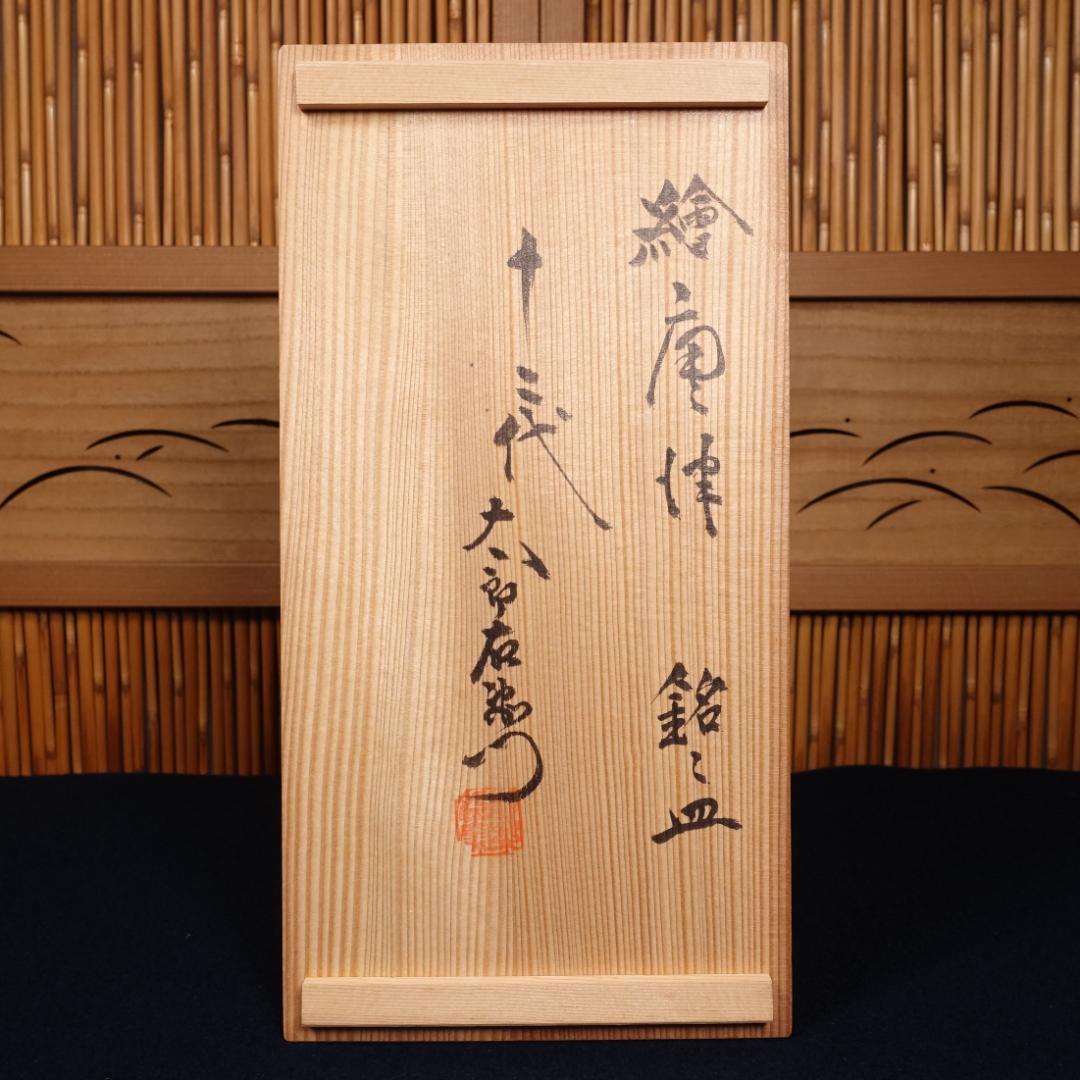 繪唐津　銘〻皿
十三代　太郎右衛門